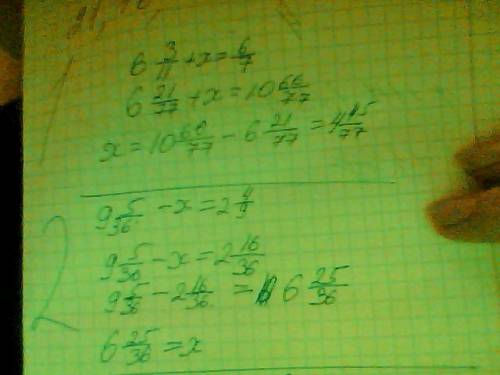 1
6 3/11 + x = 6/7
6 21/77 + x = 10 66/77
x = 10 66/77 - 6 21/77 = 4 45/77
2
9 5/36 - x = 2 4/9
9 5/36 - x = 2 16/36
9 5/36 - 2 16/36 = 6 25/36
6 25/36 = x